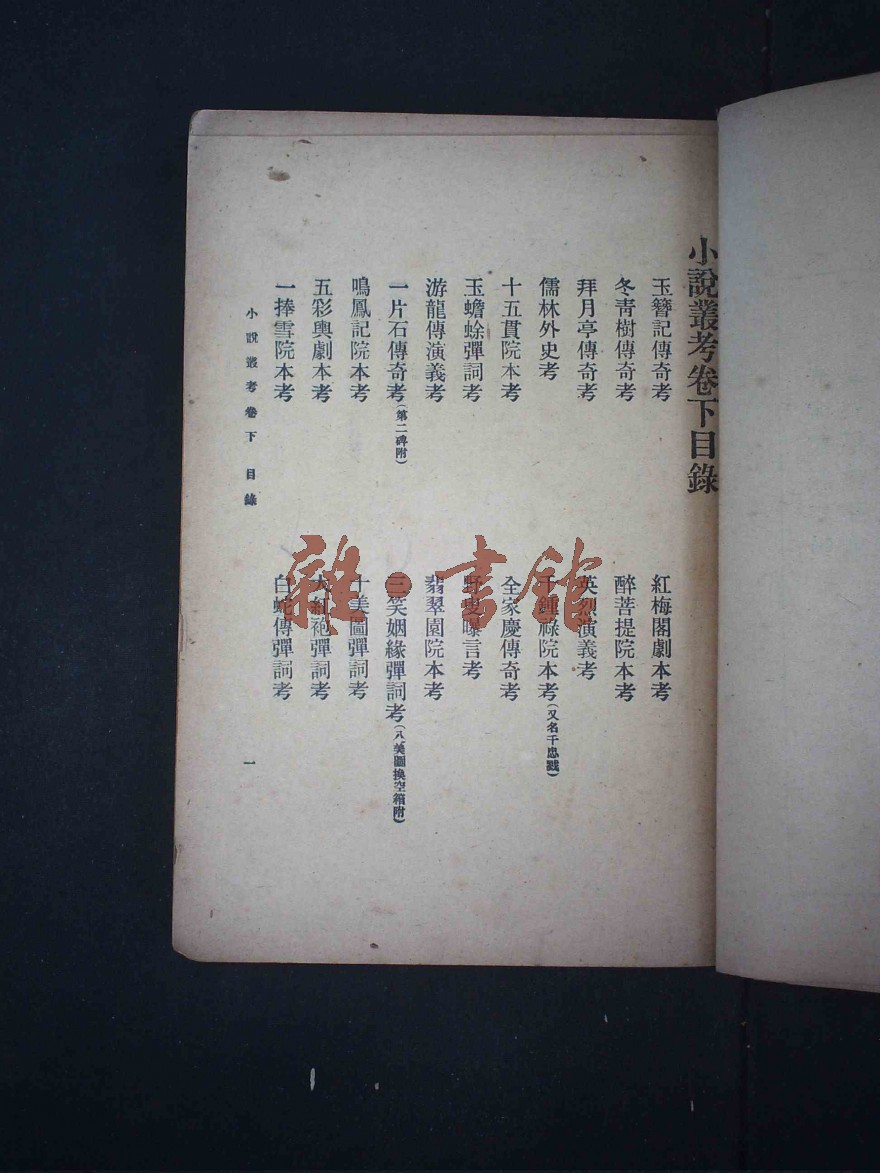 小說叢考卷下目錄
玉簪記傳奇考
紅梅閣劇本考
冬青樹傳奇考
醉菩提院本考
拜月亭傳奇考
英烈演義考
儒林外史考
千鍾祿院本考(又名千忠戮)
十五貫院本考
全家慶傳奇考
玉蟾蜍彈詞考
野叟曝言考
游龍傳演義考
翡翠園院本考
一片石傳奇考(第二碑附)
三笑姻緣彈詞考(八美圖換空箱附)
鳴鳳記院本考
十美圖彈詞考
五彩輿劇本考
大紅袍彈詞考
一捧雪院本考
白蛇傳彈詞考
小說叢考卷下 目錄
一
雜·書館